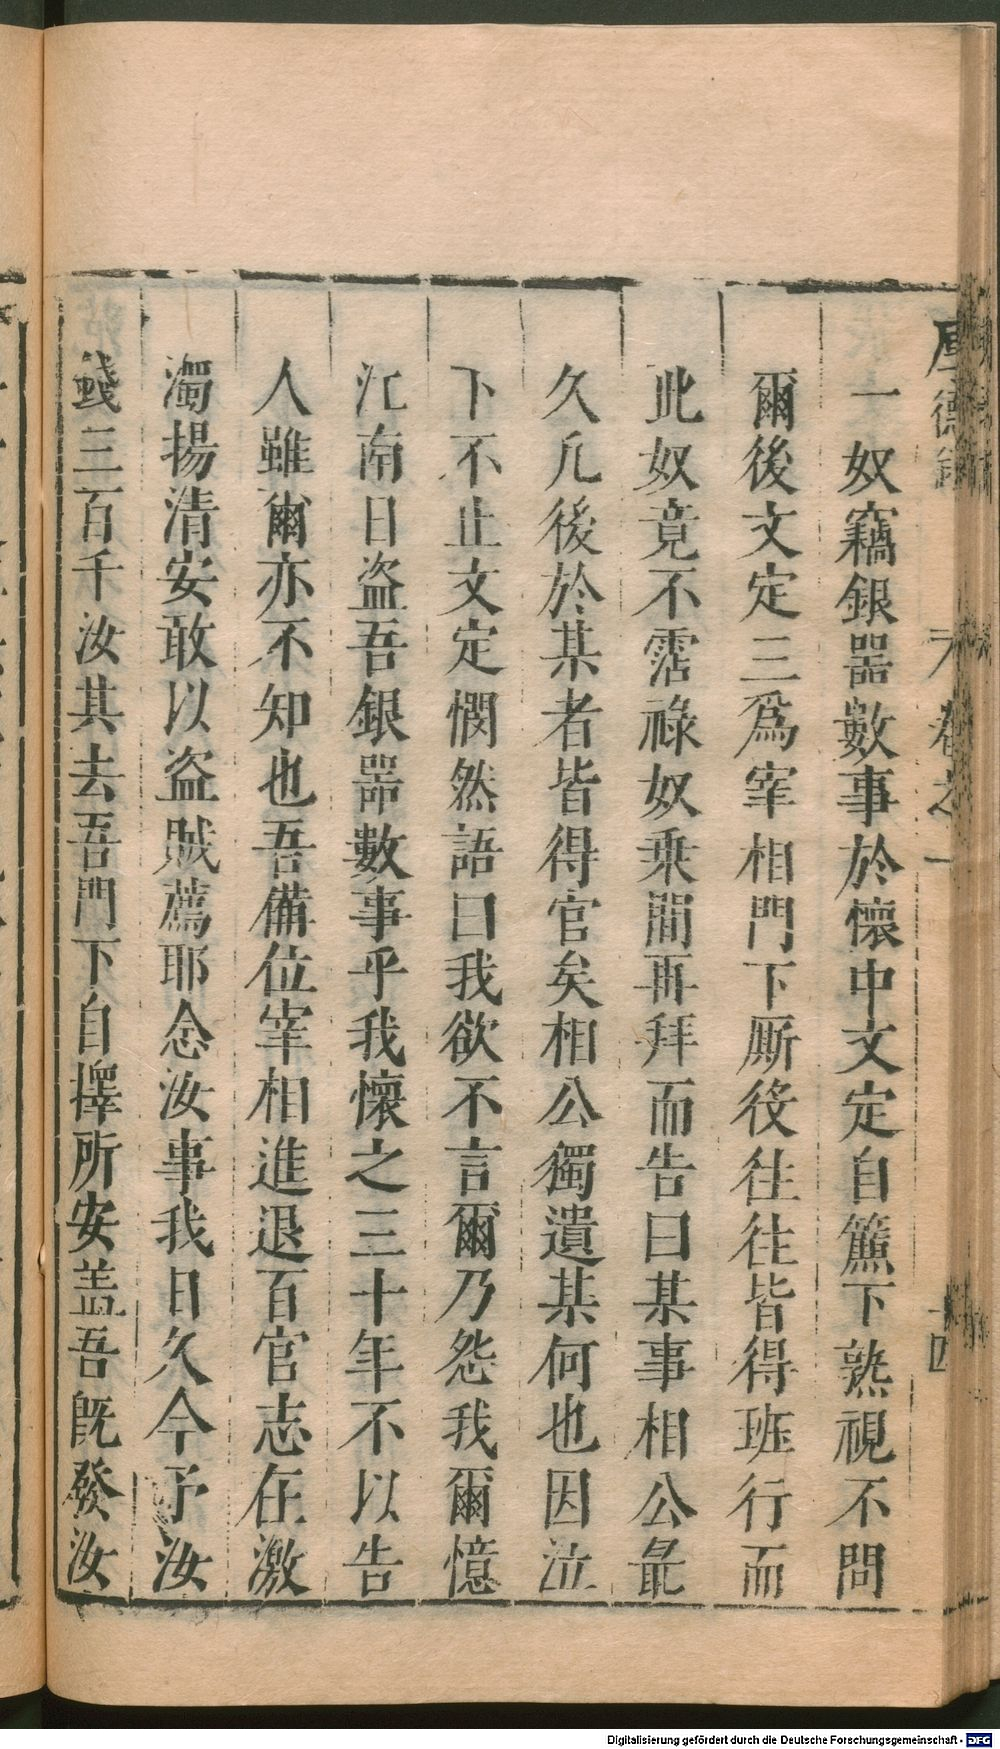 一奴竊銀器數事於懷中文定自簾下熟視不問
爾後文定三爲宰相門下厮役往往皆得班行而
此奴竟不霑祿奴乘間再拜而告曰某事相公最
久凡後於某者皆得官矣相公獨遺某何也因泣
下不止文定憫然語曰我欲不言爾乃怨我爾憶
江南日盜吾銀器數事乎我懷之三十年不以告
人雖爾亦不知也吾備位宰相進退百官志在激
濁揚清安敢以盜賊薦耶念汝事我日久今予汝
錢三百千汝其去吾門下自擇所安盖吾旣發汝
厚德錄 卷之一 十四
Digitalisierung gefördert durch die Deutsche Forschungsgemeinschaft - DFG